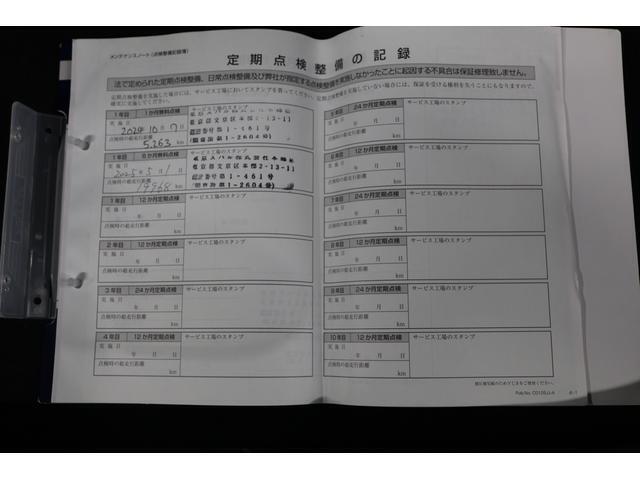 メンテナンスノート(点検整備記録簿)
定期点検整備の記録
法で定められた定期点検整備、日常点検整備及び弊社が指定する点検整備を実施しなかったことに起因する不具合は保証修理致しません。
定期点検整備を実施した場合には、サービス工場においてスタンプを受けてください。定期点検整備を実施していない場合には、保証を受ける権利を失うことにもなりますので、
確実に実施してください。
1年目 1か月無料点検 サービス工場のスタンプ
実施日
2024 10 7
東京都文京区本郷2-13-11
点検時の総走行距離
認証番号1-461号
5,263 km
1-2604号
1年目 6か月無料点検 サービス工場のスタンプ
実施日
東京都文京区本郷2-13-11
2025 5 1
認証番号1-461号
点検時の総走行距離
19968 km
1-2604号
1年目 12か月定期点検 サービス工場のスタンプ
実施日
年 月 日
点検時の総走行距離
km
2年目 12か月定期点検 サービス工場のスタンプ
実施日
年 月 日
点検時の総走行距離
km
3年目 24か月定期点検 サービス工場のスタンプ
実施日
年 月 日
点検時の総走行距離
km
4年目 12か月定期点検 サービス工場のスタンプ
実施日
年 月 日
点検時の総走行距離
km
5年目 24か月定期点検 サービス工場のスタンプ
実施日
年 月 日
点検時の総走行距離
km
6年目 12か月定期点検 サービス工場のスタンプ
実施日
年 月 日
点検時の総走行距離
km
7年目 24か月定期点検 サービス工場のスタンプ
実施日
年 月 日
点検時の総走行距離
km
8年目 12か月定期点検 サービス工場のスタンプ
実施日
年 月 日
点検時の総走行距離
km
9年目 24か月定期点検 サービス工場のスタンプ
実施日
年 月 日
点検時の総走行距離
km
10年目 12か月定期点検 サービス工場のスタンプ
実施日
年 月 日
点検時の総走行距離
km
Pub.No. C0105JJ-A 6-1